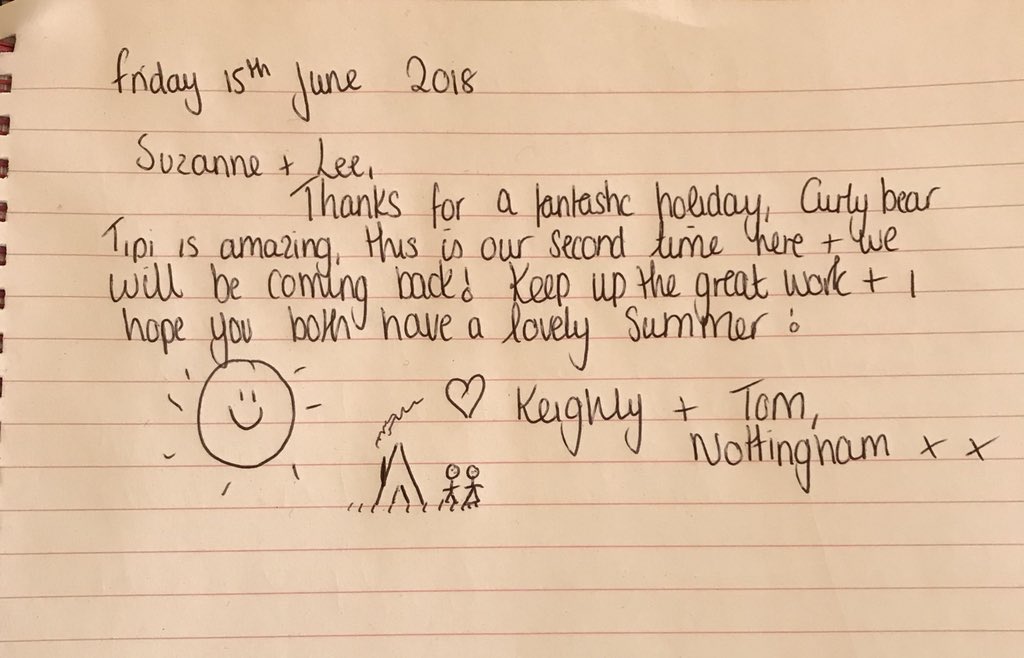 Friday 15th June 2018
Suzanne + Lee,
Thanks for a fantastic holiday, Curly bear
Tipi is amazing, this is our second time here + we
will be coming back! Keep up the great work + I
hope you both have a lovely Summer!
Keighly + Tom,
Nottingham x x